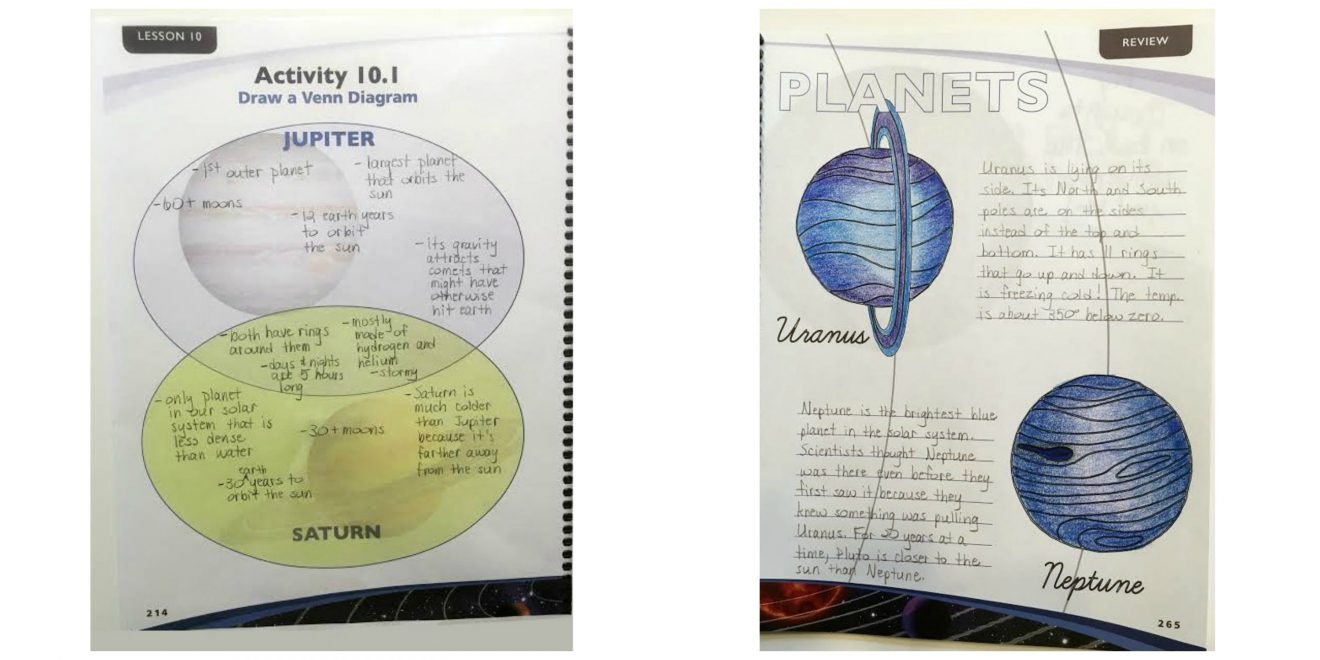 LESSON 10
Activity 10.1
Draw a Venn Diagram
JUPITER
- 1st outer planet
- largest planet
that orbits the
sun
- 60+ moons
- 12 earth years
to orbit
the sun
- its gravity
attracts
comets that
might have
otherwise
hit earth
- both have rings
around them
- mostly
made of
hydrogen and
helium
- days & nights
are 5 hours
long
- stormy
- only planet
in our solar
system that is
less dense
than water
- 30+ moons
- Saturn is
much colder
than Jupiter
because it's
farther away
from the sun
earth
- 30 ^ years to
orbit the sun
SATURN
214
REVIEW
PLANETS
Uranus is lying on its
side. Its North and South
poles are on the sides
instead of the top and
bottom. It has 11 rings
that go up and down. It
is freezing cold! The temp.
is about 350° below zero.
Uranus
Neptune is the brightest blue
planet in the solar system.
Scientists thought Neptune
was there even before they
first saw it because they
knew something was pulling
Uranus. For 20 years at a
time, Pluto is closer to the
sun than Neptune.
Neptune
265